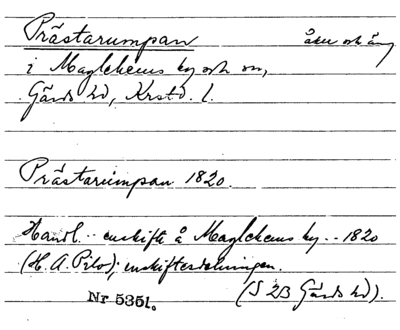 Prästarumpan åker och äng
i Maglehems by och sn,
Gärds hd, Krstd. l.
Prästarumpan 1820.
Handl. .. enskifte å Maglehems by .. 1820
(H. A. Pilo); enskiftesdelningen.
(S 2B Gärds hd).
Nr 5351.